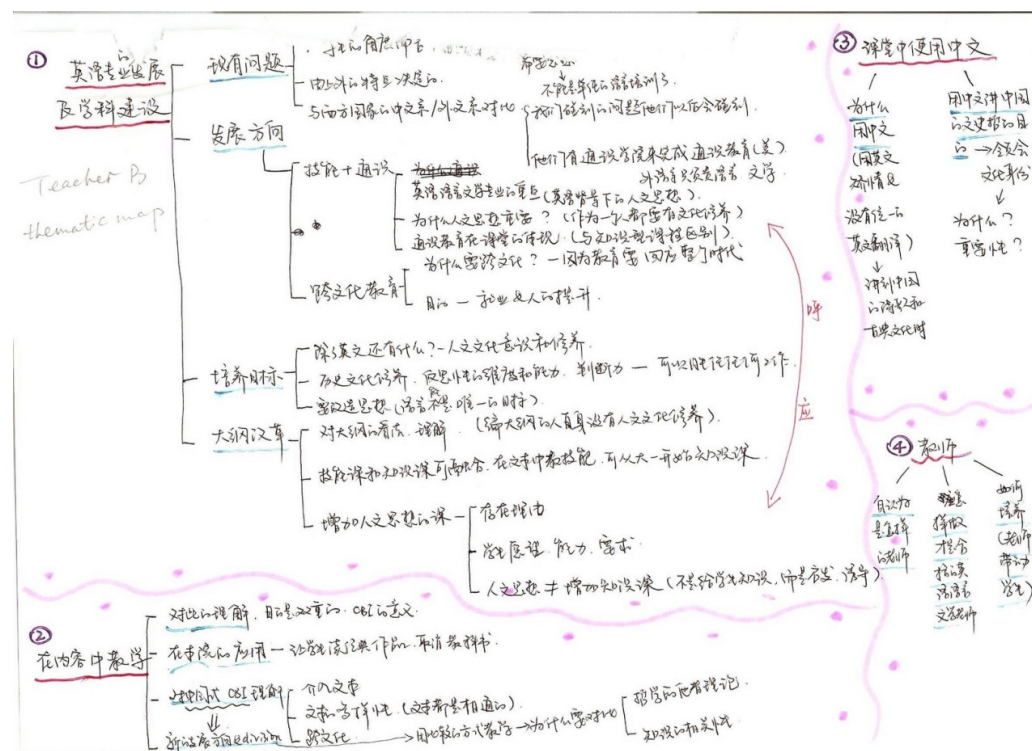 ①
英语专业的发展
及学科建设
Teacher B
thematic map
现有问题
由外语的特点决定的
与西方国家的中文系/外文系对比
不能是单纯的语言培训了
我们碰到的问题他们以后会碰到
他们有通识学院来完成通识教育(美)
外语系只负责语言 文学
发展方向
技能+通识
英语语言文学专业的重点(英语背景下的人文思想)
为什么人文思想重要?(作为一个人都要有文化修养)
通识教育在课堂的体现(与知识型课程区别)
跨文化教育
为什么要跨文化?—因为教育要回应整个时代
目的—就业与人的提升
呼
应
培养目标
除了英文还有什么?—人文文化意识和修养
历史文化修养、反思性的维度和能力、判断力—可以胜任任何工作
要改造思想(语言不是唯一的目标)
大纲改革
对大纲的看法、理解(编大纲的人自身没有人文文化修养)
技能课和知识课可融合,在文本中教技能,可从大一开始知识课
增加人文思想的课
存在理由
学生意识、能力、要求
人文思想≠增加知识课(不是给学生知识,而是启发、诱导)
②
在内容中教学
对CBI的理解,目的是双重的,CBI的意义
在本院的应用—让学生读经典作品,取消教科书
对中国式CBI理解
介入文本
文本的多样性(文本都是相通的)
跨文化
新的发展方向
用比较的方式教学→为什么要对比
哲学的他者理论
知识的相关性
③ 课堂中使用中文
为什么
用中文
(用英文
矫情且
没有统一的
英文翻译)
讲到中国
的诗歌和
古典文化时
用中文讲中国
的文史哲的目
的→领会
文化身份
为什么?
重要性?
④ 教师
自认为
是怎样
的老师
怎
样做
才是合
格的英
语语言
文学老师
如何
培养
(老师
带动
学生)